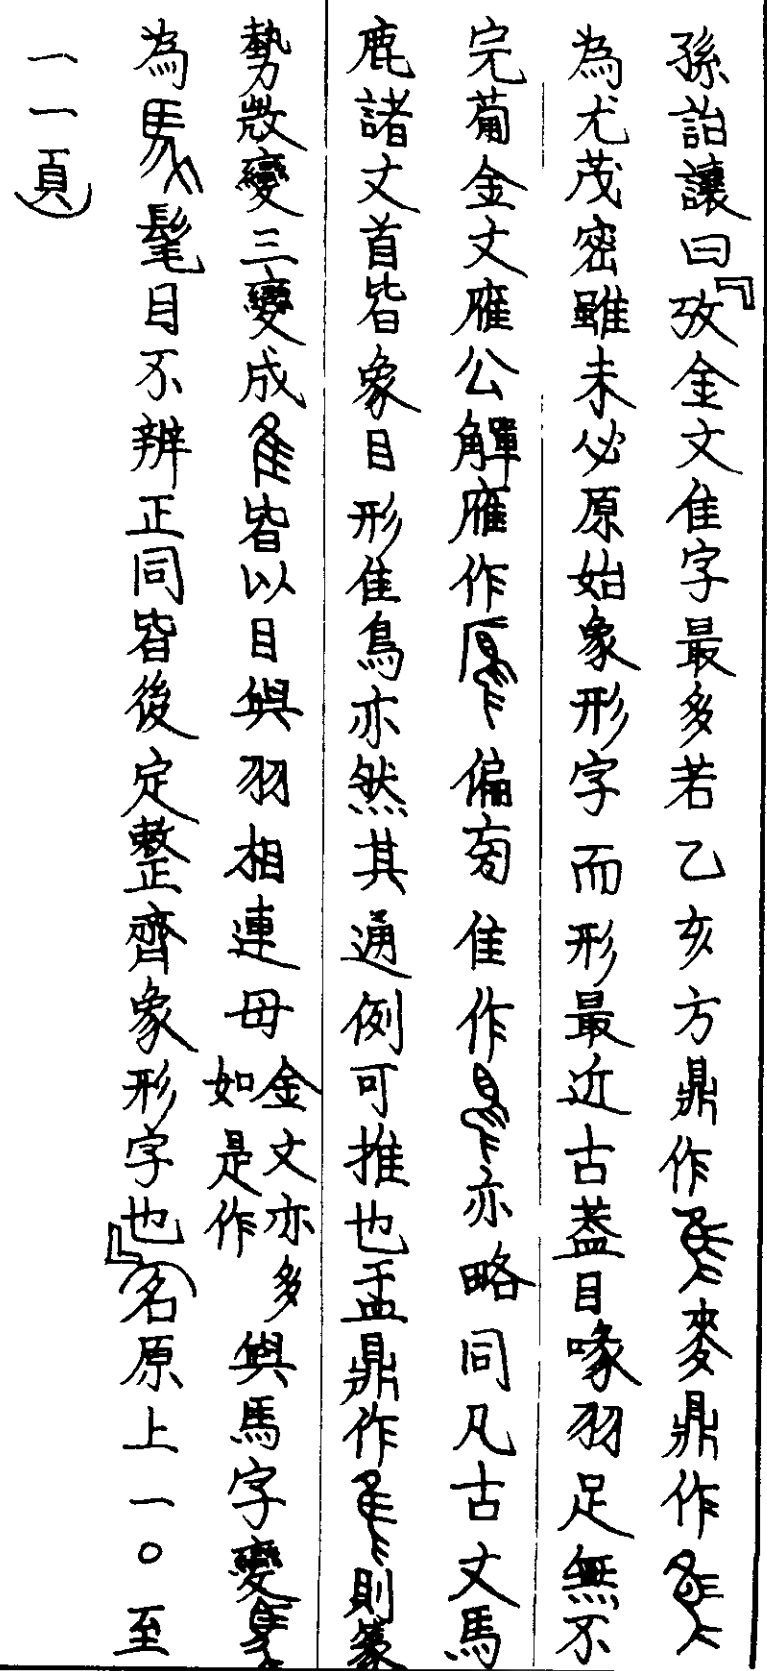 孫詒讓曰『攷金文隹字最多若乙亥方鼎作麥鼎作
為尤茂密雖未必原始象形字而形最近古葢目喙羽足無不
完葡金文雁公觶雁作偏旁隹作亦略同凡古文馬
鹿諸文首皆象目形隹鳥亦然其通例可推也盂鼎作則篆
勢微變三變成皆以目與羽相連毋金文亦多如是作與馬字變
為髦目不辨正同皆後定整齊象形字也』(名原上一○至
一一頁)